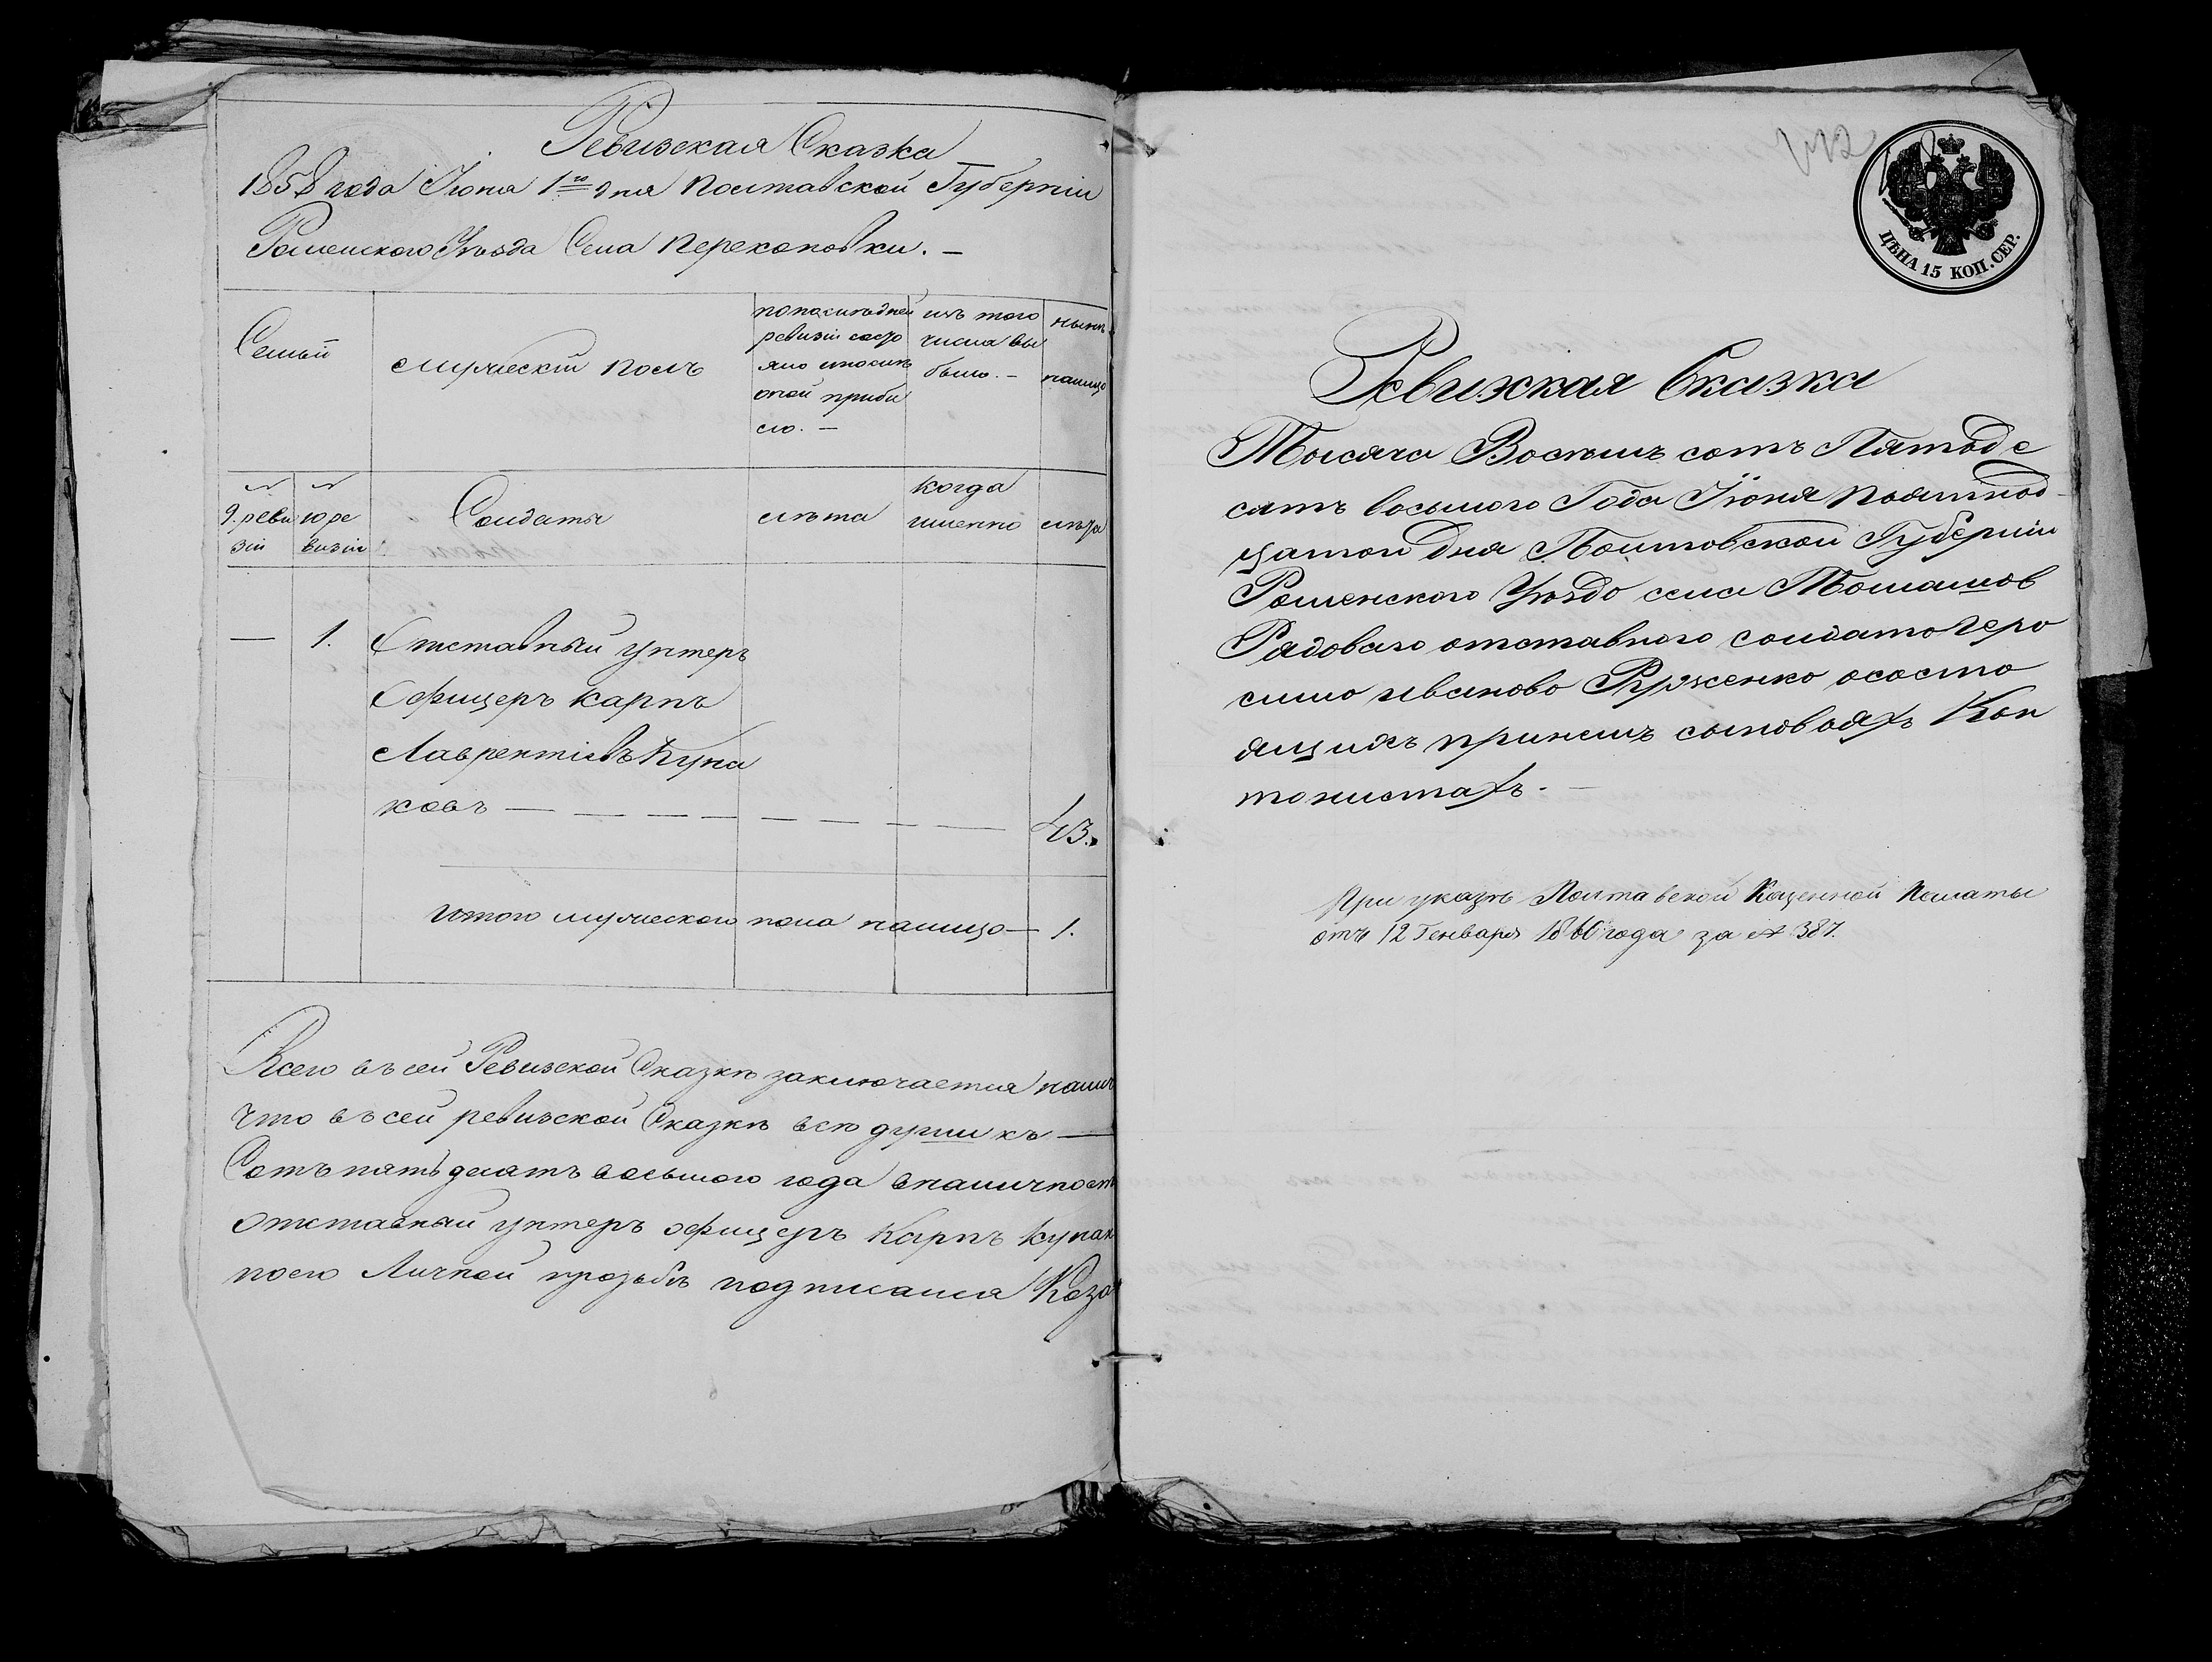 Ревизская Сказка
1858 года Іюня 1го дня Полтавской Губерніи
Роменскаго Уѣзда Села Перекоповки. —
Семьи
Мужескій полъ
по последней
ревизіи состо
яло и послѣ
оной прибы
ло. —
изъ того
числа вы
было. —
нынѣ
налицо
№
9. реви
зіи
№
10 ре
визіи
Солдаты
лѣта
когда
именно
лѣта
— 1. Отставный унтеръ
Офицеръ Карпъ
Лаврентіевъ Куна
ковъ — 43.
Итого мужескаго пола налицо — 1.
Всего въ сей Ревизской Сказкѣ заключается
что въ сей ревизской Сказкѣ всѣ души къ —
Сотъ пятьдесятъ восьмого года
отставный унтеръ офицеръ Карпъ
по его Личной прозьбѣ подписался
ЦѢНА 15 КОП. СЕР.
Ревижская Сказка
Тысяча Восемь сотъ Пятьде
сятъ восьмого Года Іюня Пятнод-
цатои Дня Полтовской Губерніи
Роменского Уѣздо села
Рядоваго отставного солдато Геро
симо Иваново Рудженко ососто
ящихъ принемъ сыновьяхъ Кон
тонистахъ. —
При указѣ Полтавской Казенной Палаты
отъ 12 Генваря 1860 года за № 387.